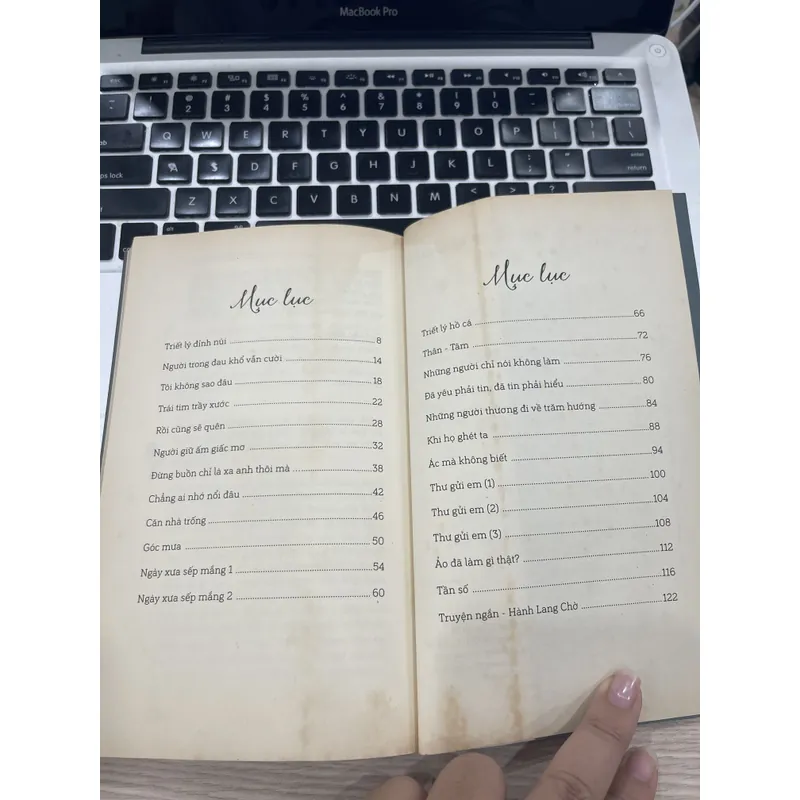 MacBook Pro
esc F1 F2 F3 F4 F5 F6 F7 F8 F9 F10 F11 F12
! @ 2 # 3 $ 4 % 5 ^ 6 & 7 * 8 ( 9 ) 0
Q W E R T Y U I O P { [ } ]
caps lock A S D F G H J K L enter return
Z X C V B N M < >
alt
Mục lục
Triết lý đỉnh núi 8
Người trong đau khổ vẫn cười 14
Tôi không sao đâu 18
Trái tim trầy xước 22
Rồi cũng sẽ quên 28
Người giữ ấm giấc mơ 32
Đừng buồn chỉ là xa anh thôi mà 38
Chẳng ai nhớ nổi đâu 42
Căn nhà trống 46
Góc mưa 50
Ngày xưa sếp mắng 1 54
Ngày xưa sếp mắng 2 60
Mục lục
Triết lý hồ cá 66
Thân - Tâm 72
Những người chỉ nói không làm 76
Đã yêu phải tin, đã tin phải hiểu 80
Những người thương đi về trăm hướng 84
Khi họ ghét ta 88
Ác mà không biết 94
Thư gửi em (1) 100
Thư gửi em (2) 104
Thư gửi em (3) 108
Ảo đã làm gì thật? 112
Tần số 116
Truyện ngắn - Hành Lang Chờ 122